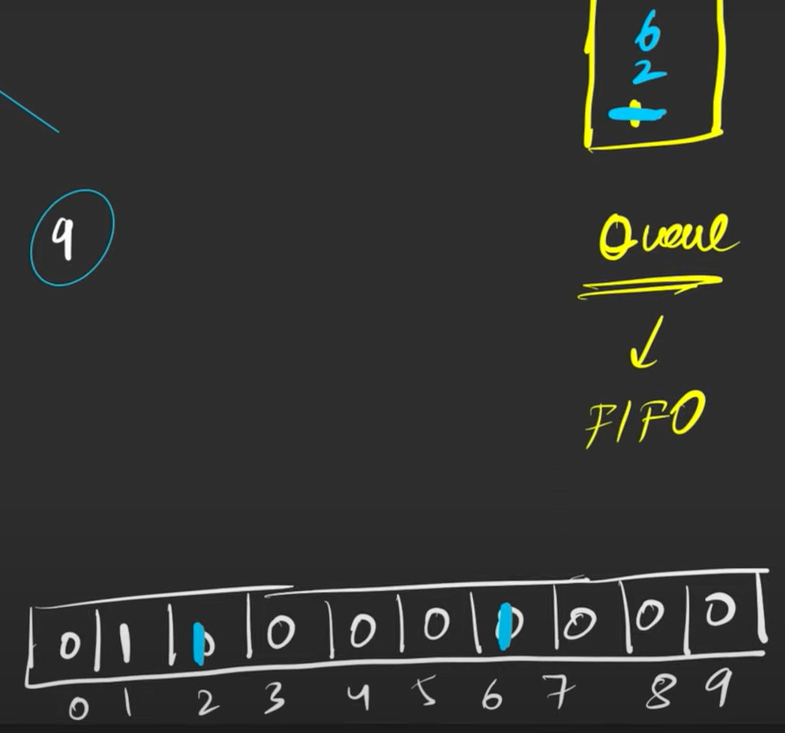 6
2
1
9
Queue
FIFO
0 1 1 0 0 0 1 0 0 0
0 1 2 3 4 5 6 7 8 9